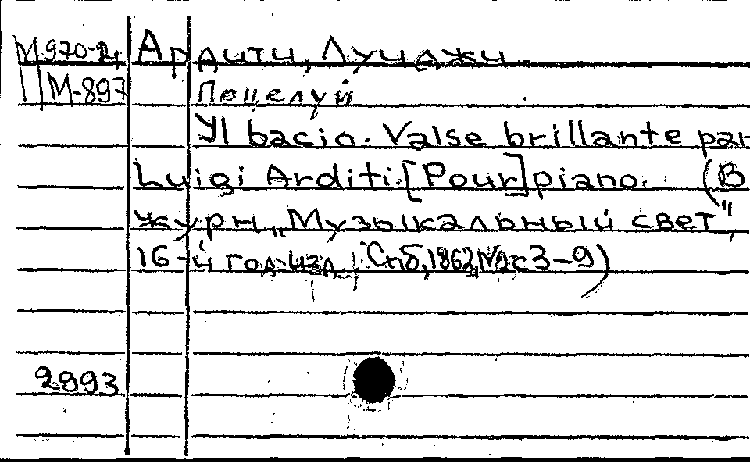 М970-4 Ардити, Луиджи
М-897 Поцелуй
Yl bacio. Valse brillante par
Luigi Arditi. [Pour] piano. (В
журн. „Музыкальный свет",
16-й год изд. Спб, 1862, с 3-9)
2893